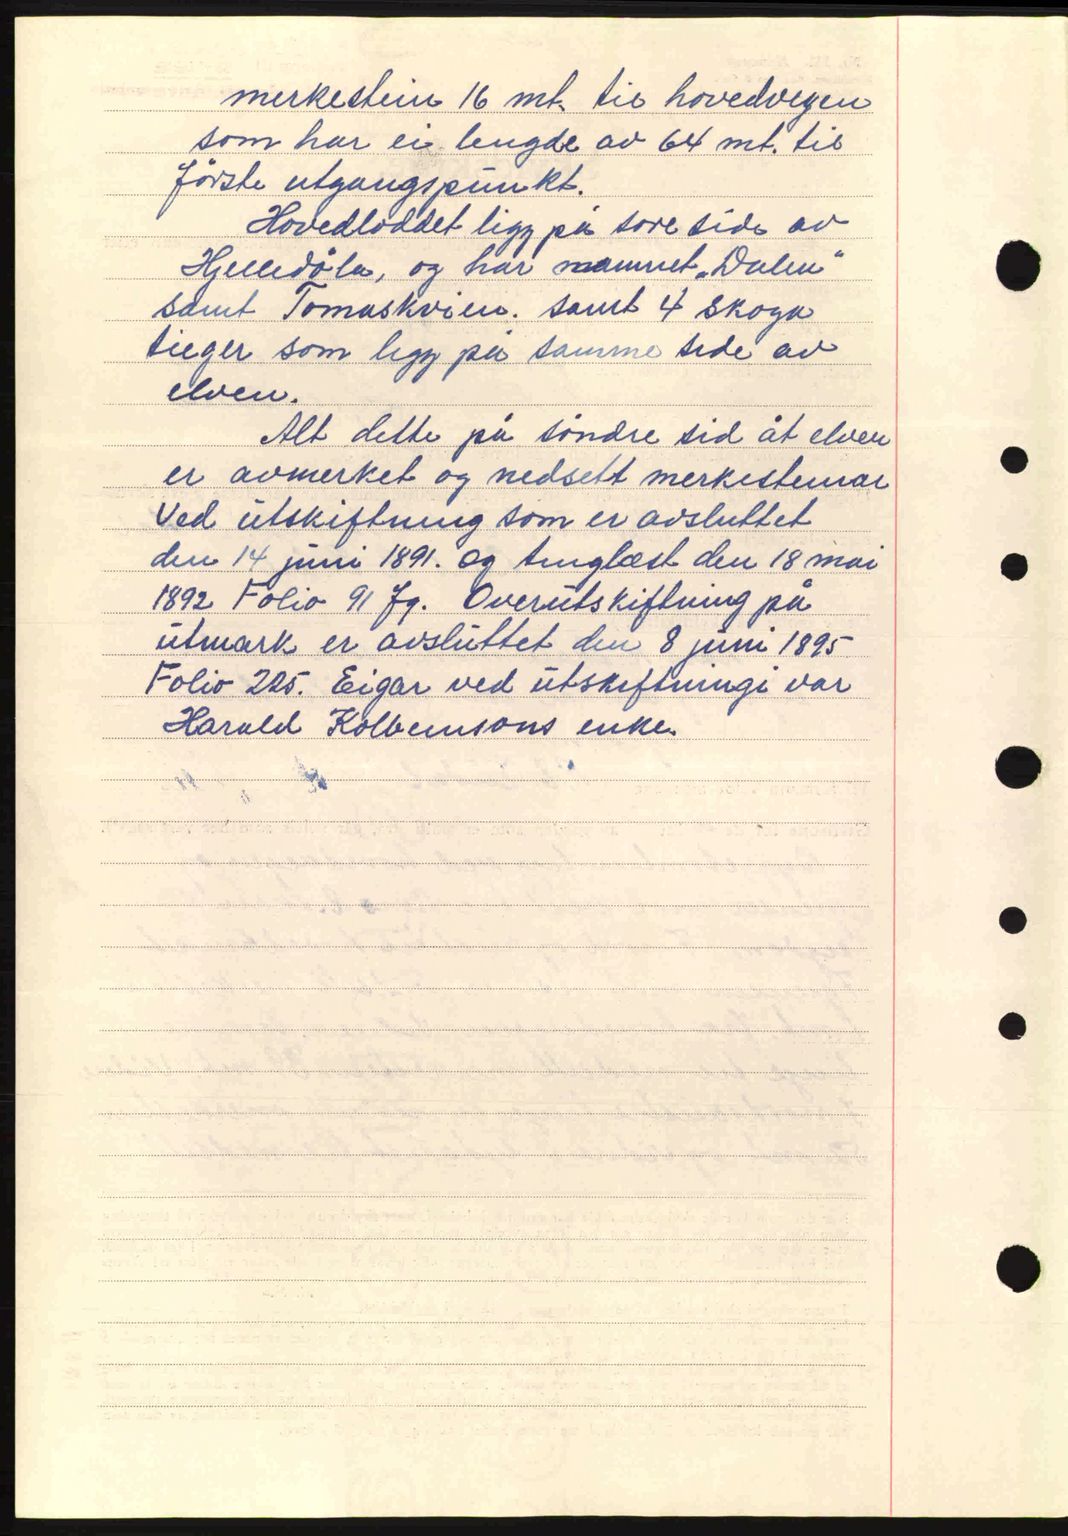 merkestein 16 mt. til hovedvegen
som har ei lengde av 64 mt. til
förste utgangspunkt.
Hovedloddet ligg på söre side av
Hjelledöla, og har namnet „Dalen“
samt Tomaskvien. samt 4 skoga
tieger som ligg på samme side av
elven.
Alt dette på söndre sid åt elven
er avmerket og nedsett merkesteinar
Ved utskiftning som er avsluttet
den 14 juni 1891. og tinglæst den 18 mai
1892 Folio 91 fg. Overutskiftning på
utmark er avsluttet den 8 juni 1895
Folio 225. Eigar ved utskiftningi var
Harald Kolbeinsons enke.